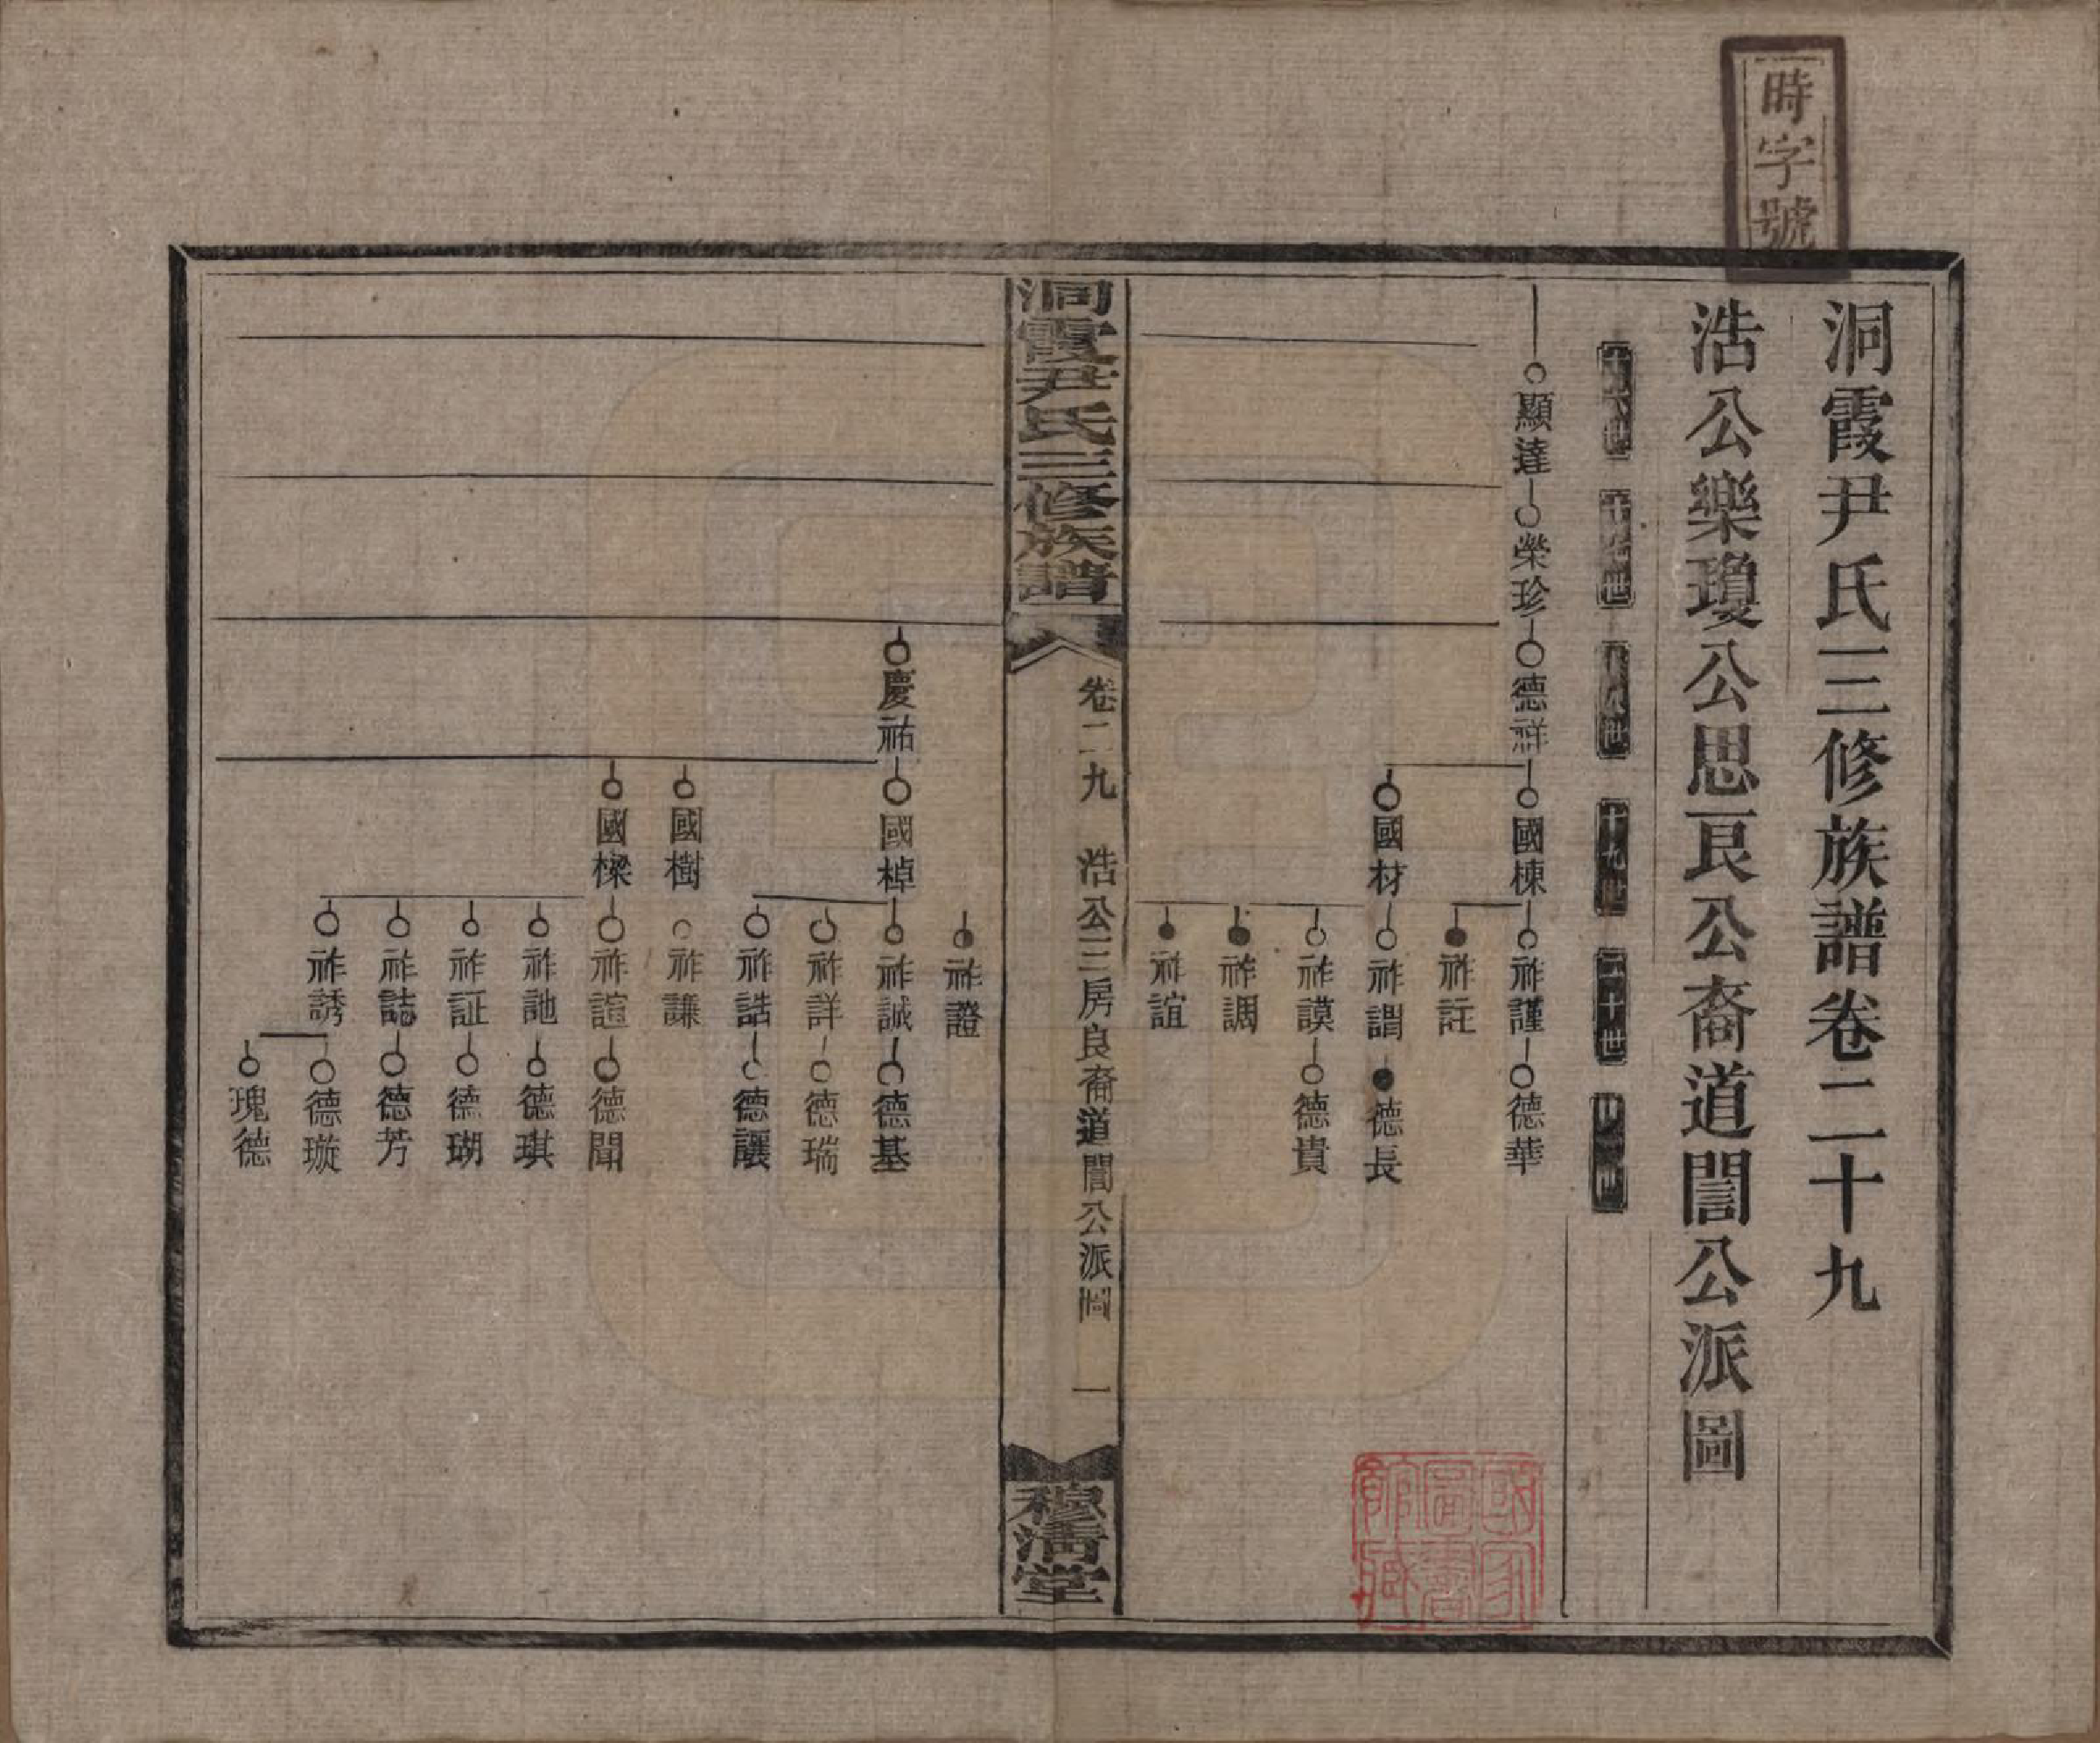 時字號
洞霞尹氏三修族譜卷二十九
浩公樂瓊公思良公裔道誾公派圖
十六世
十七世
十八世
十九世
二十世
廿一世
顯達 榮珍 德祥 國棟 祚謹 德華
祚註
國材 祚謂 德長
祚謨 德貴
祚調
祚誼
洞霞尹氏三修族譜
卷二九 浩公三房良裔道誾公派圖 一
穆清堂
祚證
慶祐 國棹 祚誠 德基
祚詳 德瑞
祚誥 德讓
國樹 祚謙
國樑 祚諠 德聞
祚訑 德琪
祚証 德瑚
祚誌 德芳
祚誘 德璇
瑰德
國家圖書館藏